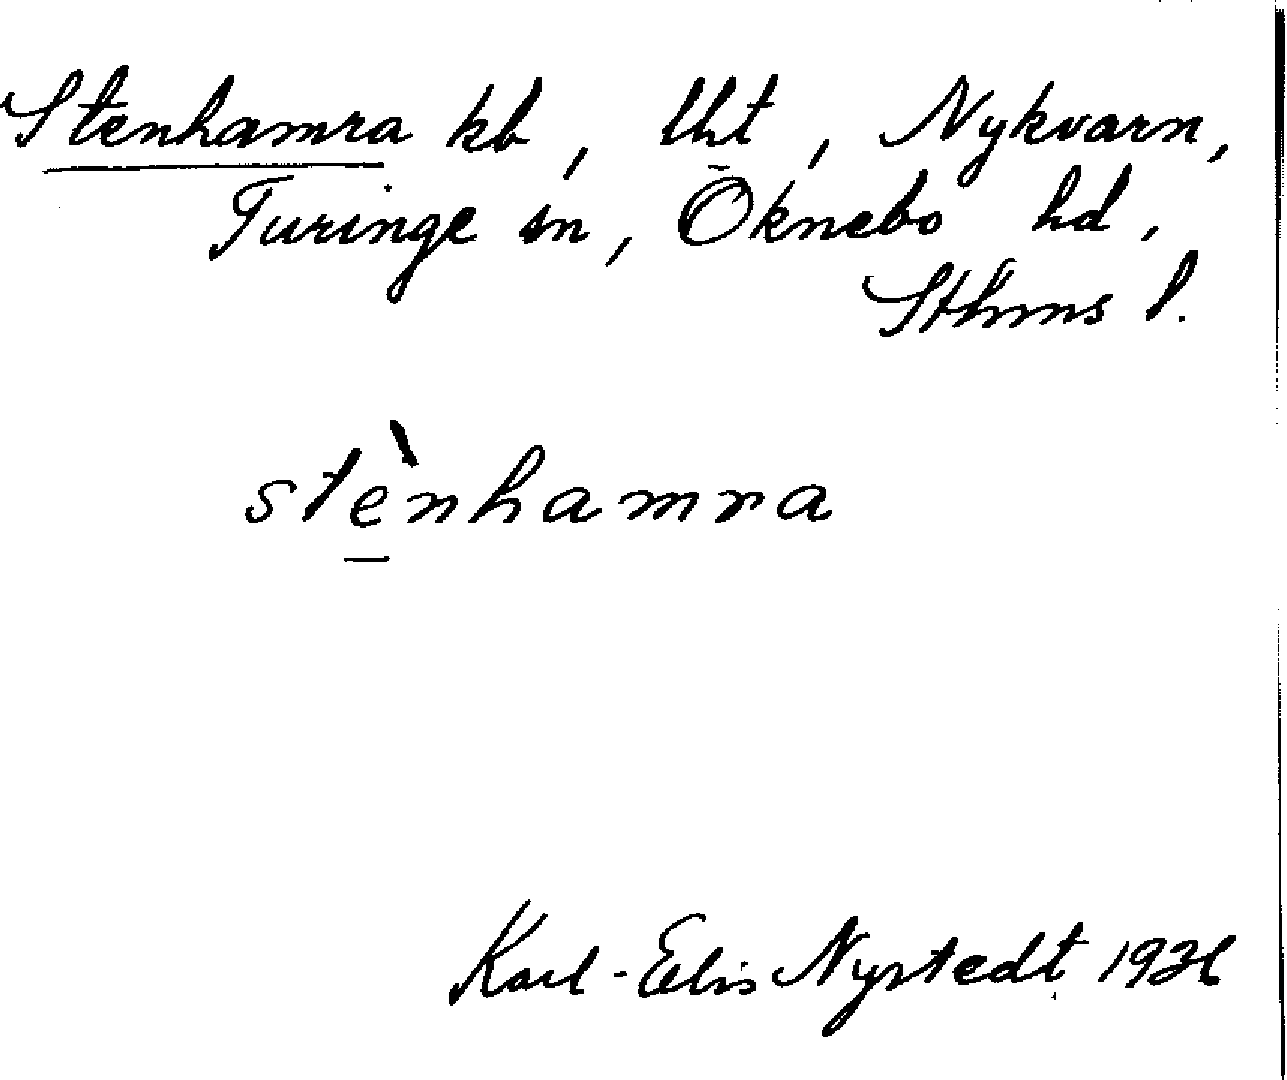 Stenhamra kb, lht, Nykvarn,
Turinge sn, Öknebo hd,
Sthms l.
stènhamra
Karl-Elis Nyrstedt 1936